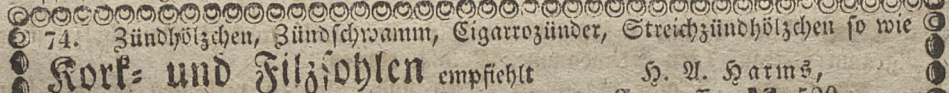 74. Zündhölzchen, Zündschwamm, Cigarrozünder, Streichzündhölzchen so wie
Kork- und Filzsohlen empfiehlt H. A. Harms,